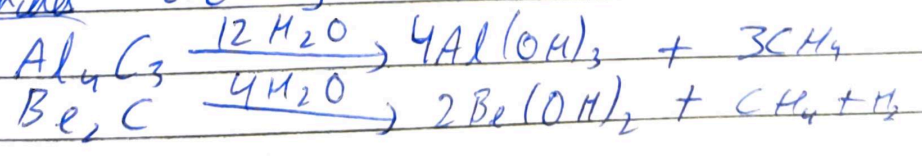 Al₄C₃ —12H₂O→ 4Al(OH)₃ + 3CH₄
Be₂C —4H₂O→ 2Be(OH)₂ + CH₄ + H₂